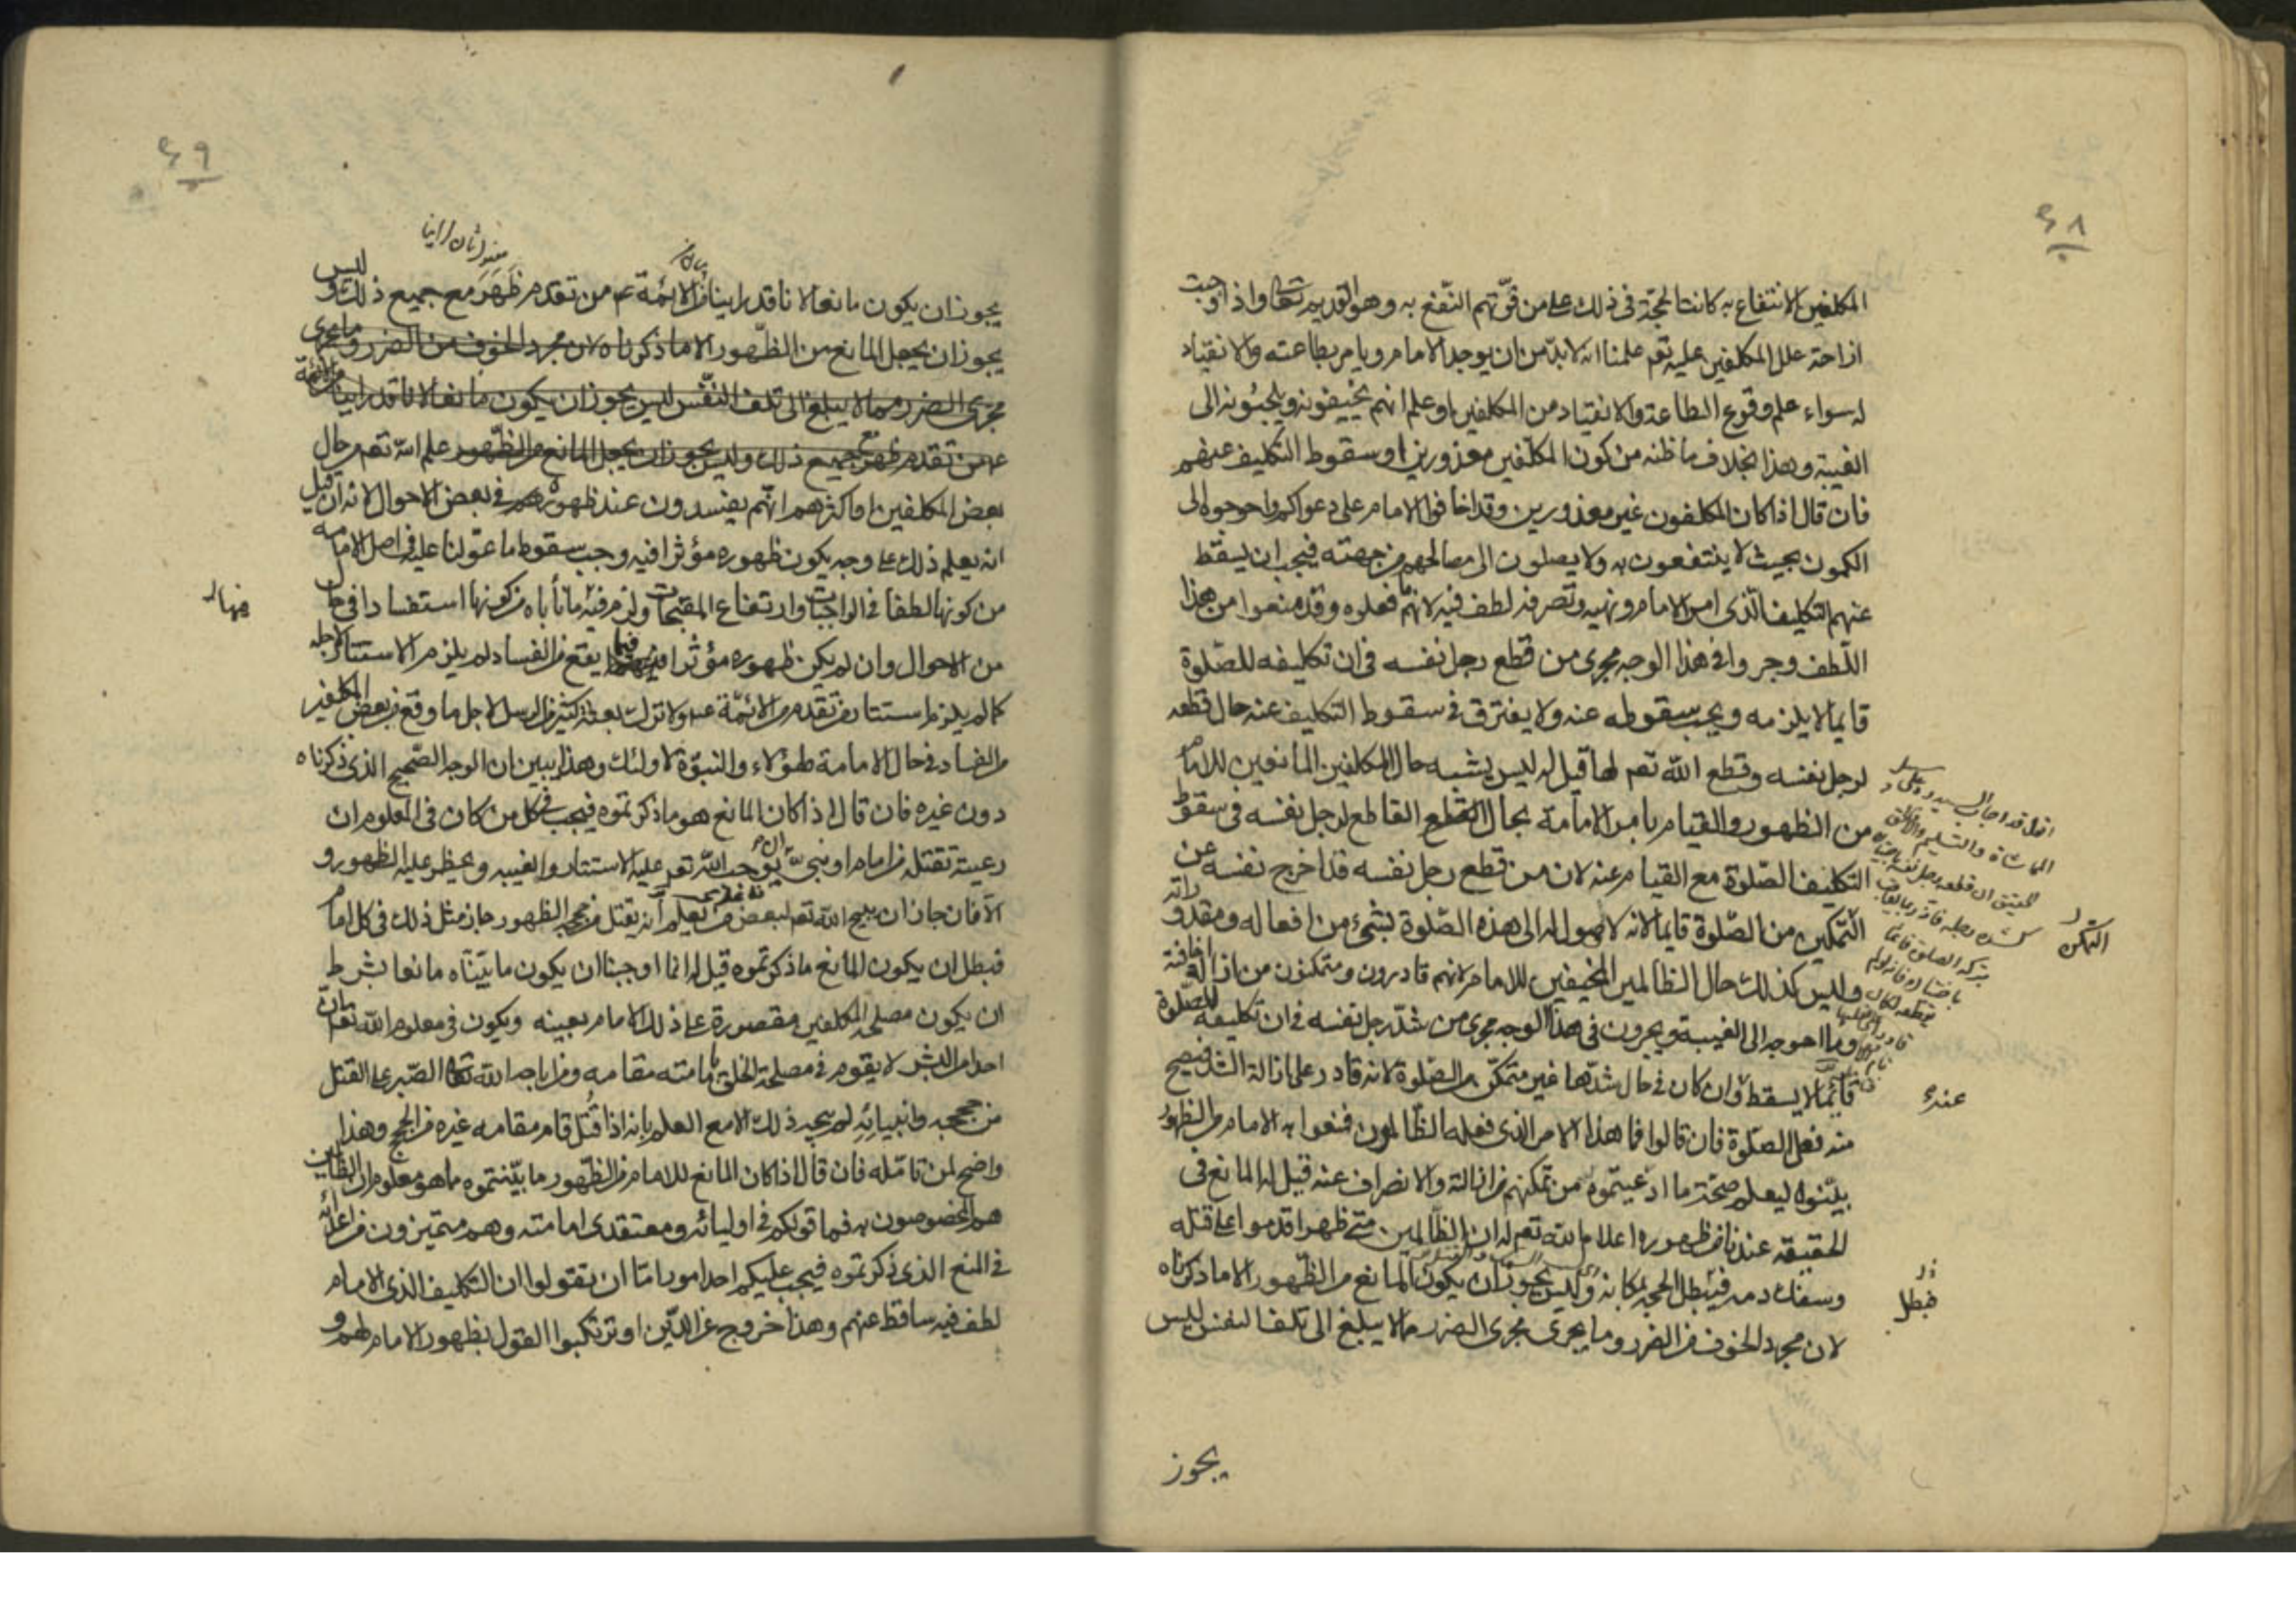 ٤٨
المكلفين الانتفاع به كانت الحجة فى ذلك على من فوّتهم النّفع به وهو القديم تعالى واذا وجبت
ازاحة علل المكلفين عليه تعم علمنا انه لابدّ من ان يوجد الامام ويامر بطاعته والانقياد
له سواء علم وقوع الطاعة والانقياد من المكلفين او علم انهم يخيفونه ويلجئونه الى
الغيبة وهذا بخلاف ما ظنه من كون المكلّفين معذورين او سقوط التكليف عنهم
فان قال اذا كان المكلفون غير معذورين وقد اخافوا الامام على دعواكم واحوجوه الى
الكمون بحيث لا ينتفعون به ولا يصلون الى مصالحهم من جهته فيجب ان يسقط
عنهم التكليف الّذى امر الامام ونهيه وتصرفه لطف فيه لانهم ما فعلوه وقد منعوا من هذا
اللّطف وجروا فى هذا الوجه مجرى من قطع رجل نفسه فى ان تكليفه للصّلوة
قايما لا يلزمه ويجب سقوطه عنه ولا يفترق فى سقوط التكليف عنه حال قطعه
لرجل نفسه وقطع الله تعم لها قيل له ليس يشبه حال المكلفين المانعين للامام
من الظهور والقيام بامر الامامة بحال القاطع لرجل نفسه فى سقوط
التكليف الصّلوة مع القيام عنه لان من قطع رجل نفسه قد اخرج نفسه عن
التّمكين من الصّلوة قايما لانه لا وصول له الى هذه الصّلوة بشئ من افعاله ومقدوراته
وليس كذلك حال الظالمين المخيفين للامام لانهم قادرون ومتمكنون من ازالة اخافته
وما احوجه الى الغيبة ويجرون فى هذا الوجه مجرى من شدّ رجل نفسه فى ان تكليفه للصّلوة
قائما لا يسقط وان كان فى حال شدّها غير متمكّن من الصّلوة لانه قادر على ازالة الشد فيصح
منه فعل الصّلوة فان قالوا فما هذا الامر الذى فعله الظّالمون فمنعوا به الامام من الظهور
بيّنوه ليعلم صحّة ما ادعيتموه من تمكنهم من ازالته والانصراف عنه قيل له المانع فى
الحقيقة عندنا من ظهوره اعلام الله تعم له ان الظّالمين متى ظهر اقدموا على قتله
وسفك دمه فيبطل الحجة بمكانه وليس يجوز ان يكون المانع من الظّهور الا ما ذكرناه
لان مجرد الخوف من الضرر وما يجرى مجرى الضرر مما لا يبلغ الى تلف النفس ليس
يجوز
التمكن
عنده
فبطل
٤٩
يجوز ان يكون مانعا لانا قد راينا من الائمة عم من تقدم ظهر مع جميع ذلك وليس
يجوز ان يجعل المانع من الظّهور الا ما ذكرناه لان مجرد الخوف من الضرر وما يجرى
مجرى الضرر مما لا يبلغ الى تلف النّفس ليس يجوز ان يكون مانعا لانا قد راينا من الائمة
عم من تقدم ظهر جميع ذلك وليس يجوز ان يجعل المانع من الظّهور علم الله تعم من حال
بعض المكلفين او اكثرهم انّهم يفسدون عند ظهوره فى بعض الاحوال لانه ان قيل
انه يعلم ذلك على وجه يكون ظهوره مؤثرا فيه وجب سقوط ما عوّلنا عليه فى اصل الامامة
من كونها لطفا فى الواجبات وارتفاع المقبحات ولزم فيه ما نأباه من كونها استفسادا فى حال
من الاحوال وان لم يكن ظهوره مؤثرا فيما يقع من الفساد لم يلزم الاستتار لاجله
كما لم يلزم استتار من تقدم من الائمّة عم ولا ترك بعثة كثير من الرسل لاجل ما وقع من بعض المكلفين
من الفساد فى حال الامامة لهؤلاء والنبوّة لاولئك وهذا يبيّن ان الوجه الصّحيح الذى ذكرناه
دون غيره فان قال اذا كان المانع هو ما ذكرتموه فيجب فى كل من كان فى المعلوم ان
رعيته تقتله من امام او نبى ان يوجب الله تعم عليه الاستتار والغيبه ويحظر عليه الظهور و
الا فان جاز ان يبيح الله تعم لبعض من يعلم انه يقتل من حججه الظهور جاز مثل ذلك فى كل امام
فبطل ان يكون المانع ما ذكرتموه قيل له انما اوجبنا ان يكون ما بيّنّاه مانعا بشرط
ان يكون مصلحة المكلفين مقصورة على ذلك الامام بعينه ويكون فى معلوم الله تعم ان
احدا من البشر لا يقوم فى مصلحة الخلق بامامته مقامه ومن اباحه الله تعالى الصّبر على القتل
من حججه وانبيائه لم يبحه ذلك الا مع العلم بانه اذا قُتل قام مقامه غيره من الحجج وهذا
واضح لمن تامّله فان قال اذا كان المانع للامام من الظّهور ما بيّنتموه مما هو معلوم ان الظالمين
هم المخصوصون به فما قولكم فى اوليائه ومعتقدى امامته وهم متميزون من اعدائه
فى المنع الذى ذكرتموه فيجب عليكم احد امور امّا ان تقولوا ان التكليف الذى الامام
لطف فيه ساقط عنهم وهذا خروج عن الدّين او ترتكبوا القول بظهور الامام لهم و